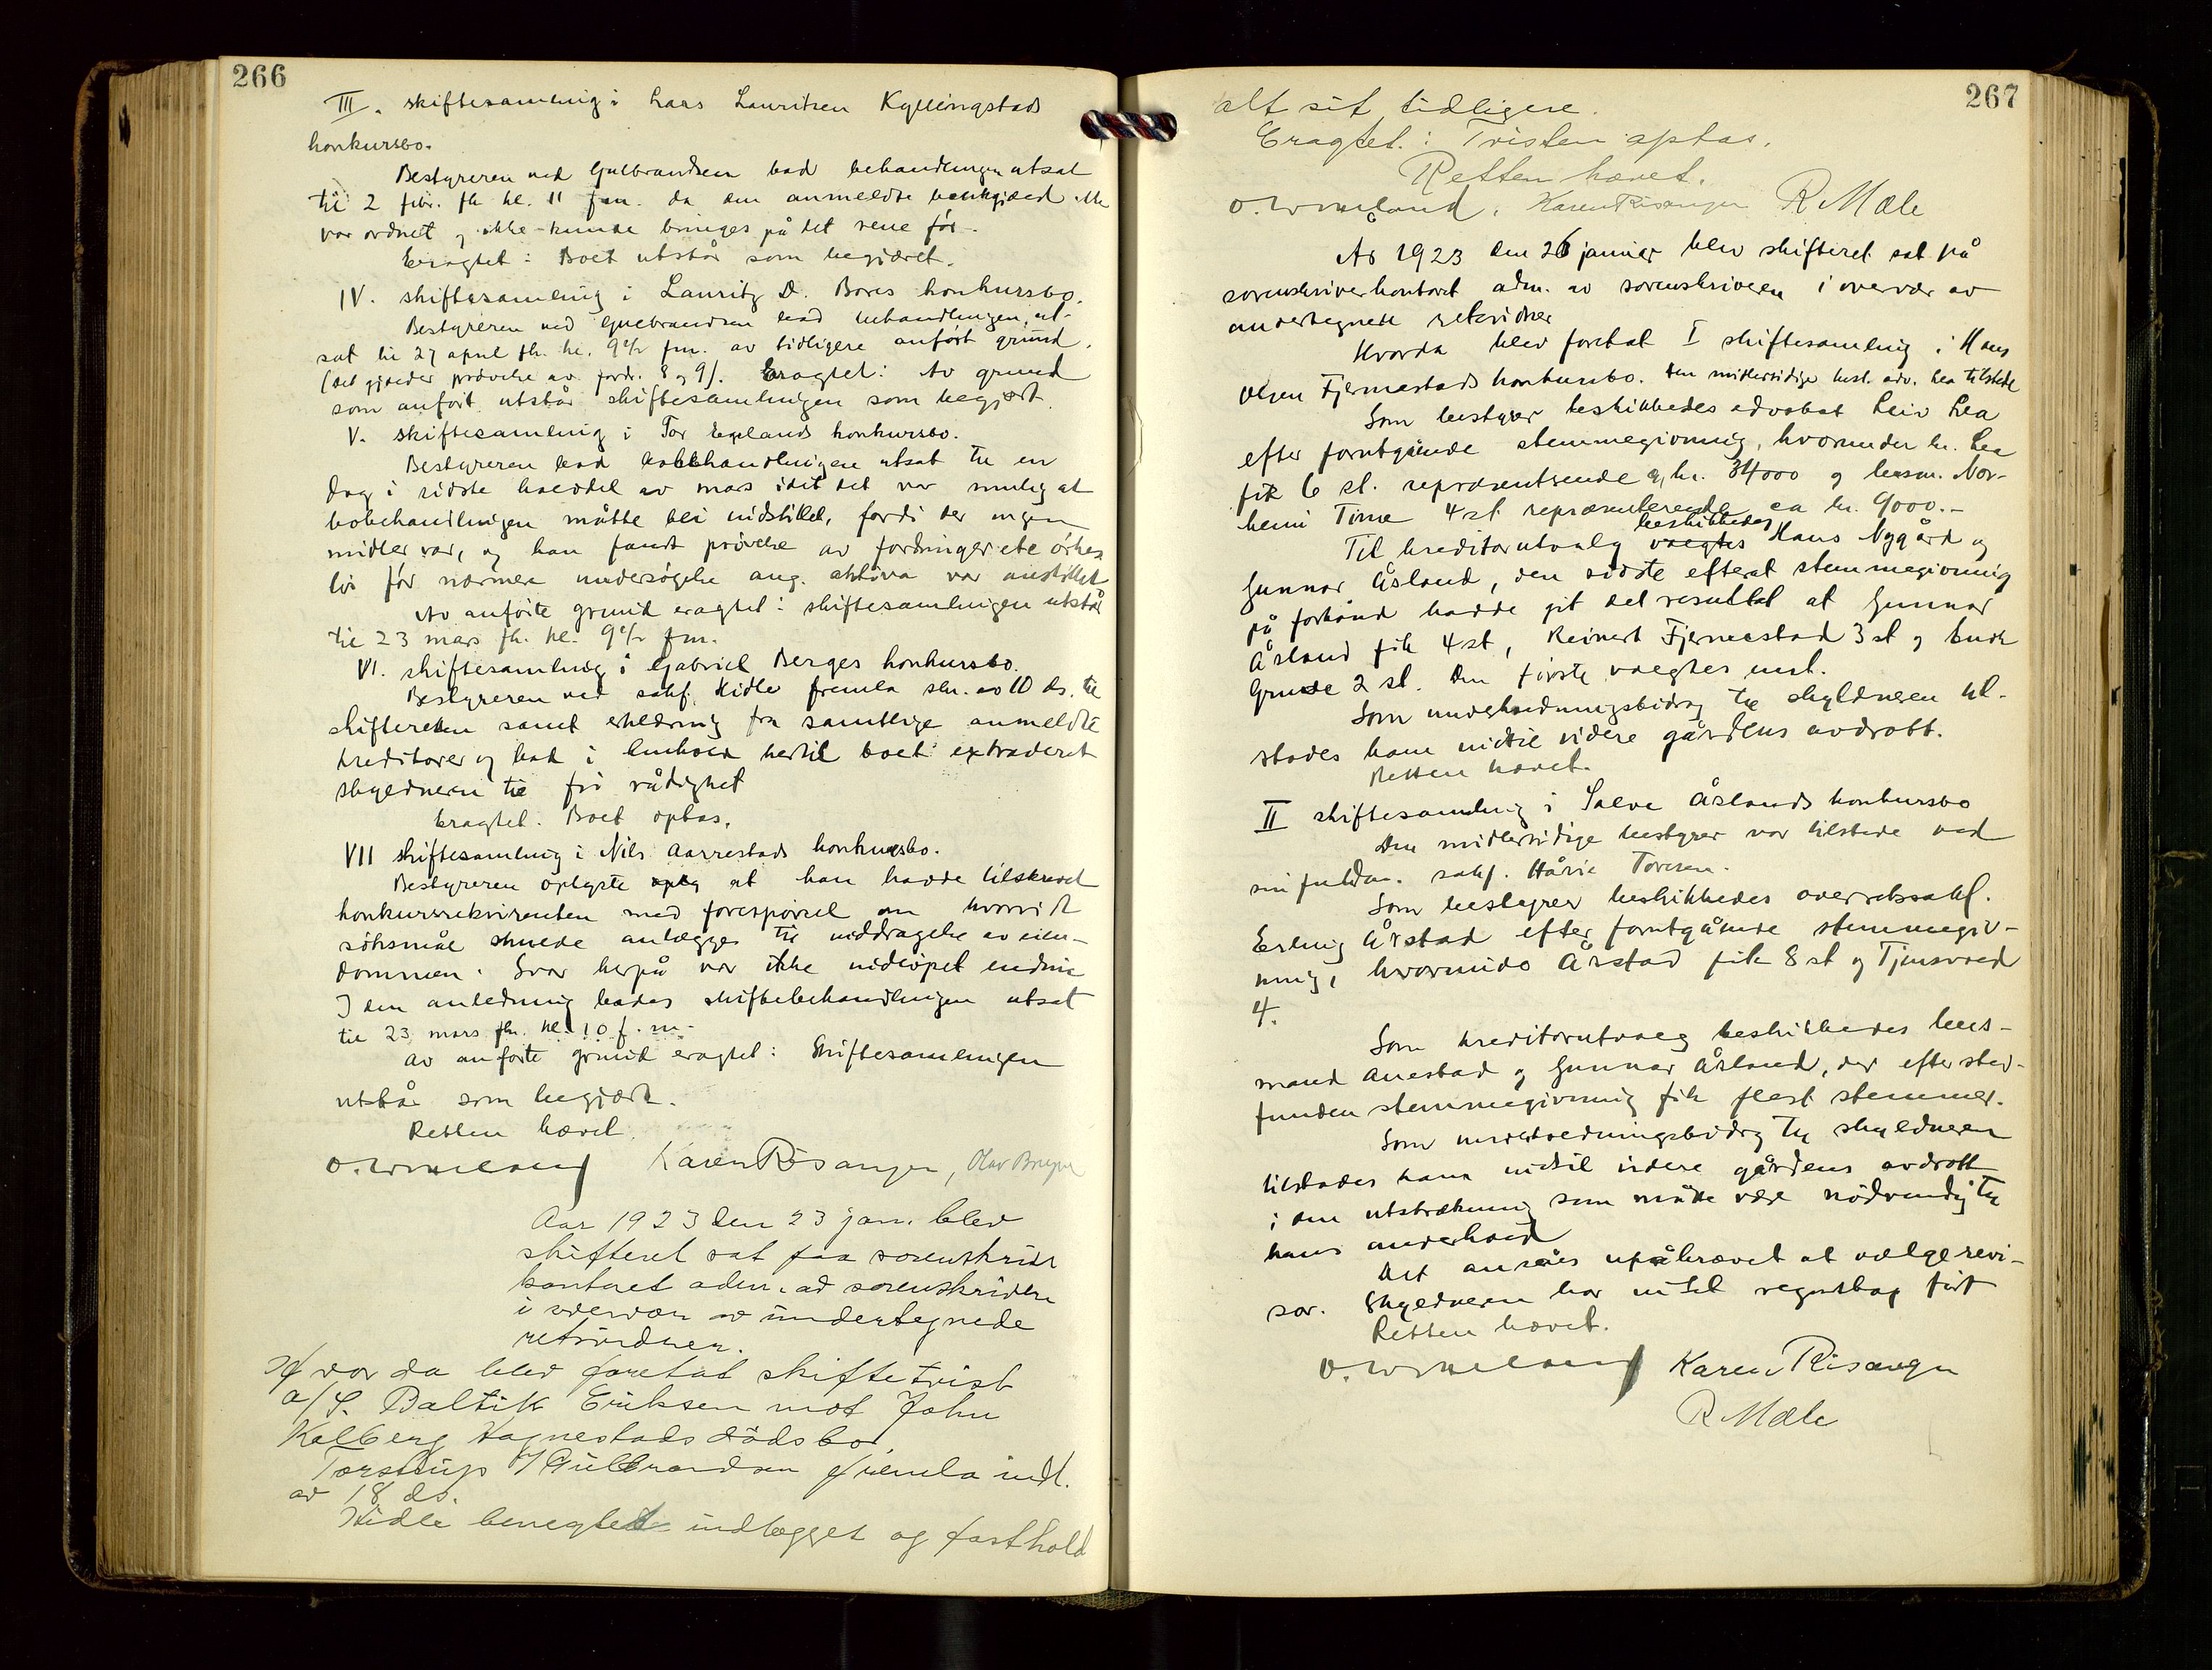 266
III. skiftesamling i Lars Lauritsen Kyllingstads
konkursbo.
Bestyreren ved Gulbrandsen bad behandlingen utsat
til 2 febr. fk kl. 11 fm. da den anmeldte bankgjæld ikke
var ordnet og ikke kunde bringes på det rene før.
Eragtet: Boet utstår som begjæret.
IV. skiftesamling i Lauritz D. Bores konkursbo.
Bestyreren ved Gulbrandsen bad behandlingen ut-
sat til 27 april fk. kl. 9½ fm. av tidligere anført grund.
(det gjælder prøvelse av fordr. 8 og 9). Eragtet: Av grund
som anført utstår skiftesamlingen som begjært.
V. skiftesamling i Tor Egelands konkursbo.
Bestyreren bad bobehandlingen utsat til en
dag i sidste halvdel av mars idet det var mulig at
bobehandlingen måtte bli indstillet, fordi der ingen
midler var, og han fandt prøvelse av fordringer ikke
før nærmere undersøgelse ang. aktiva var anstillet
Av anførte grund eragtet: skiftesamlingen utstår
til 23 mars fk. kl. 9½ fm.
VI. skiftesamling i Gabriel Berges konkursbo.
Bestyreren ved sakf. Hidle fremla skr. av 10 ds. til
skifteretten samt erklæring fra samtlige anmeldte
kreditorer og bad i henhold hertil boet extraderet
skyldneren til fri rådighet
Eragtet. Boet optas.
VII skiftesamling i Nils Aarrestads konkursbo.
Bestyreren oplyste oply at han hadde tilskrevet
konkursrekvirenten med forespørsel om hvorvidt
søksmål skulde anlægges til inddragelse av eien-
dommen. Svar herpå var ikke indløpet endnu
I den anledning bades skiftebehandlingen utsat
til 23 mars fk. kl. 10 f.m.
Av anførte grund eragtet: Skiftesamlingen
utstår som begjært.
Retten hævet.
O. Omeland Karen Risanger, Olav Bryne
Aar 1923 den 23 jan. blev
skifteret sat paa sorenskriver
kontoret adm. av sorenskriveren
i overvær av undertegnede
retsvidner.
Hvorda blev foretat skiftetvist
a/S. Baltik Eriksen mot John
Kalberg Hognestads dødsbo.
Torstrup v/Gulbrandsen fremla indl.
av 18 ds.
Hidle benegtet indlægget og fasthold
267
alt sit tidligere.
Eragtet: Tvisten optas.
Retten hævet.
O. Omeland, Karen Risanger R Mæle
År 1923 den 26 januar blev skifteret sat på
sorenskriverkontoret adm. av sorenskriveren i overvær av
undertegnede retsvidner
Hvorda blev foretat I skiftesamling i Hans
Olsen Fjermestads konkursbo. Den midlertidige best. adv. Lea tilstede
Som bestyrer beskikkedes advokat Leiv Lea
efter forutgående stemmegivning, hvorunder hr. Lea
fik 6 st. repræsenterende kr. 34000 og lensm. Nor-
heim Time 4 st. repræsenterende ca kr. 9000.-
beskikkedes
Til kreditorutvalg valgtes Hans Nygård og
Gunnar Åsland, den sidste efterat stemmegivning
på forhånd hadde git det resultat at Gunnar
Åsland fik 4 st, Reinert Fjermestad 3 st og
Grude 2 st. Den første valgtes enst.
Som underholdningsbidrag til skyldneren til-
stodes ham indtil videre gårdens avdrott.
Retten hævet.
II skiftesamling i Salve Åslands konkursbo
Den midlertidige bestyrer var tilstede ved
sin fuldm. sakf. Håvie Toresen.
Som bestyrer beskikkedes overretssakf.
Erling Årstad efter forutgående stemmegiv-
ning, hvorunder Årstad fik 8 st og Tjensvold
4.
Som kreditorutvalg beskikkedes lens-
mand Auestad og Gunnar Åsland, der efter sted-
funden stemmegivning fik flest stemmer.
Som underholdningsbidrag til skyldneren
tilstodes ham indtil videre gårdens avdrott
i den utstrækning som måtte være nødvendig til
hans underhold
Det ansåes upåkrævet at vælge revi-
sor. Skyldneren har intet regnskap ført
Retten hævet.
O. Omeland Karen Risanger
R Mæle